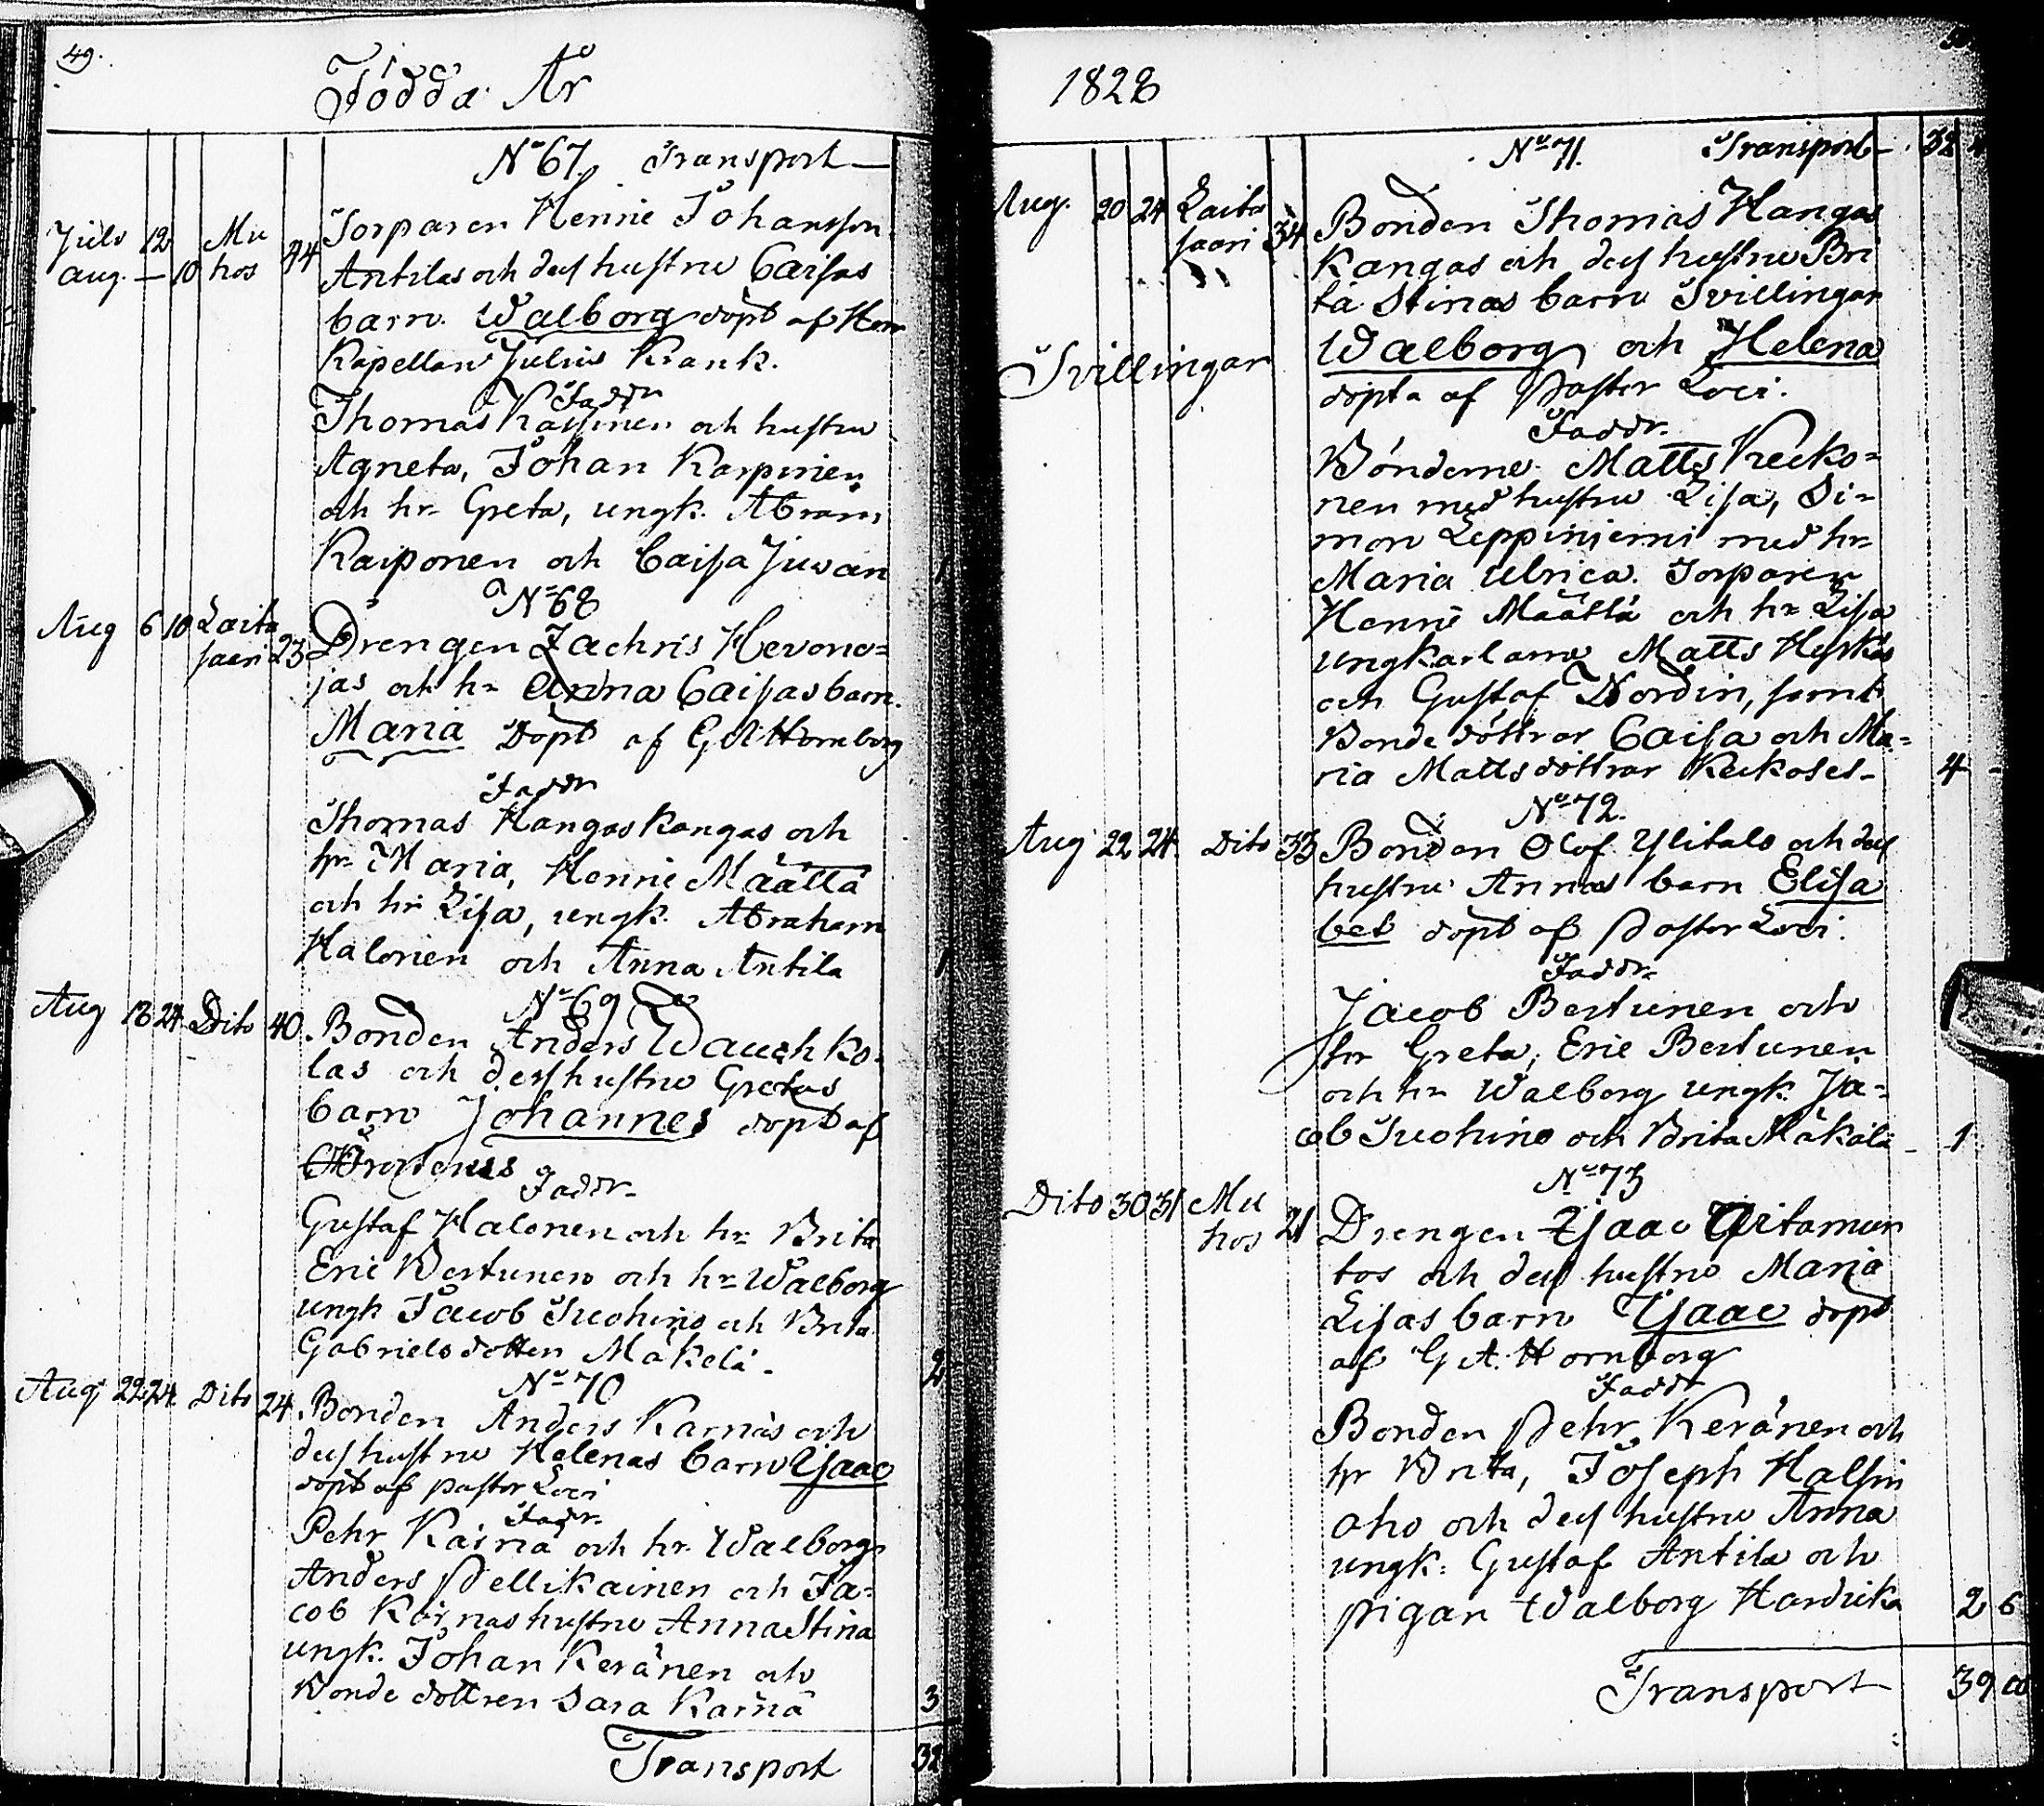 49.
Födda År
No 67. Transport
Julii 12 Mu 44 Torparen Henric Johansson
Aug. — 10 hos Antilas och dess hustru Caisas
barn Walborg döpt af Herr
Kapellan Julius Krank.
Faddr
Thomas Kassinen och hustru
Agneta, Johan Karpinen
och hr Greta, ungk. Abram
Kaiponen och Caisa Juvan 1
No 68
Aug 6 10 Laita
saari 23 Drengen Zachris Hevono=
jas och hr Anna Caisas barn
Maria Döpt af G A Hornborg
Faddr
Thomas Hangaskangas och
hr Maria, Henric Määttä
och hr Lisa, ungk. Abraham
Halonen och Anna Antila 1
No 69
Aug 18 24 Dito 40 Bonden Anders Wauhko-
las och dess hustru Gretas
barn Johannes döpt af
Faddr
Gustaf Halonen och hr Brita
Eric Bertunen och hr Walborg
ungk Jacob Tuohino och Brita
Gabrielsdotten Mäkelä 2
No 70
Aug 22 24 Dito 24 Bonden Anders Karnäs och
dess hustru Helenas barn Isaac
döpt af Pastor Loci
Faddr
Pehr Kärnä och hr Walborg
Anders Pellikainen och Ja=
cob Kärnas hustru Anna Stina
ungk. Johan Keränen och
Bonde dottren Sara Kärnä 3
Transport 32
50
1828
No 71. Transport 32
Aug. 20 24 Laita
saari 34 Bonden Thomas Hangas
kangas och dess hustru Bri
ta Stinas barn Tvillingar
Walborg och Helena
Tvillingar
döpta af Pastor Loci.
Faddr
Bönderne Matts Kecko=
nen med hustru Lisa, Si=
mon Leppiniemi med hr
Maria Ulrica. Torparen
Henric Määttä och hr Lisa
ungkarlarne Matts
och Gustaf Nordin, samt
Bonde döttrar Caisa och Ma=
ria Mattsdöttrar Keckoses 4 -
No 72.
Aug 22 24 Dito 33 Bonden Olof Ylitalo och dess
hustru Annas barn Elisa
bet döpt af Pastor Loci.
Faddr
Jacob Bertunen och
hr Greta, Eric Bertunen
och hr Walborg ungk. Ja=
cob Tuohino och Brita Mäkälä - 1
No 73
Dito 30 31 Mu
hos 21 Drengen Isaac Aitamur
tos och dess hustru Maria
Lisas barn Isaac döpt
af G A. Hornborg
Faddr
Bonden Pehr Keränen och
hr Brita, Joseph Halsin
aho och dess hustru Anna
ungk. Gustaf Antila och
pigan Walborg Hardicka 2 6
Transport 39